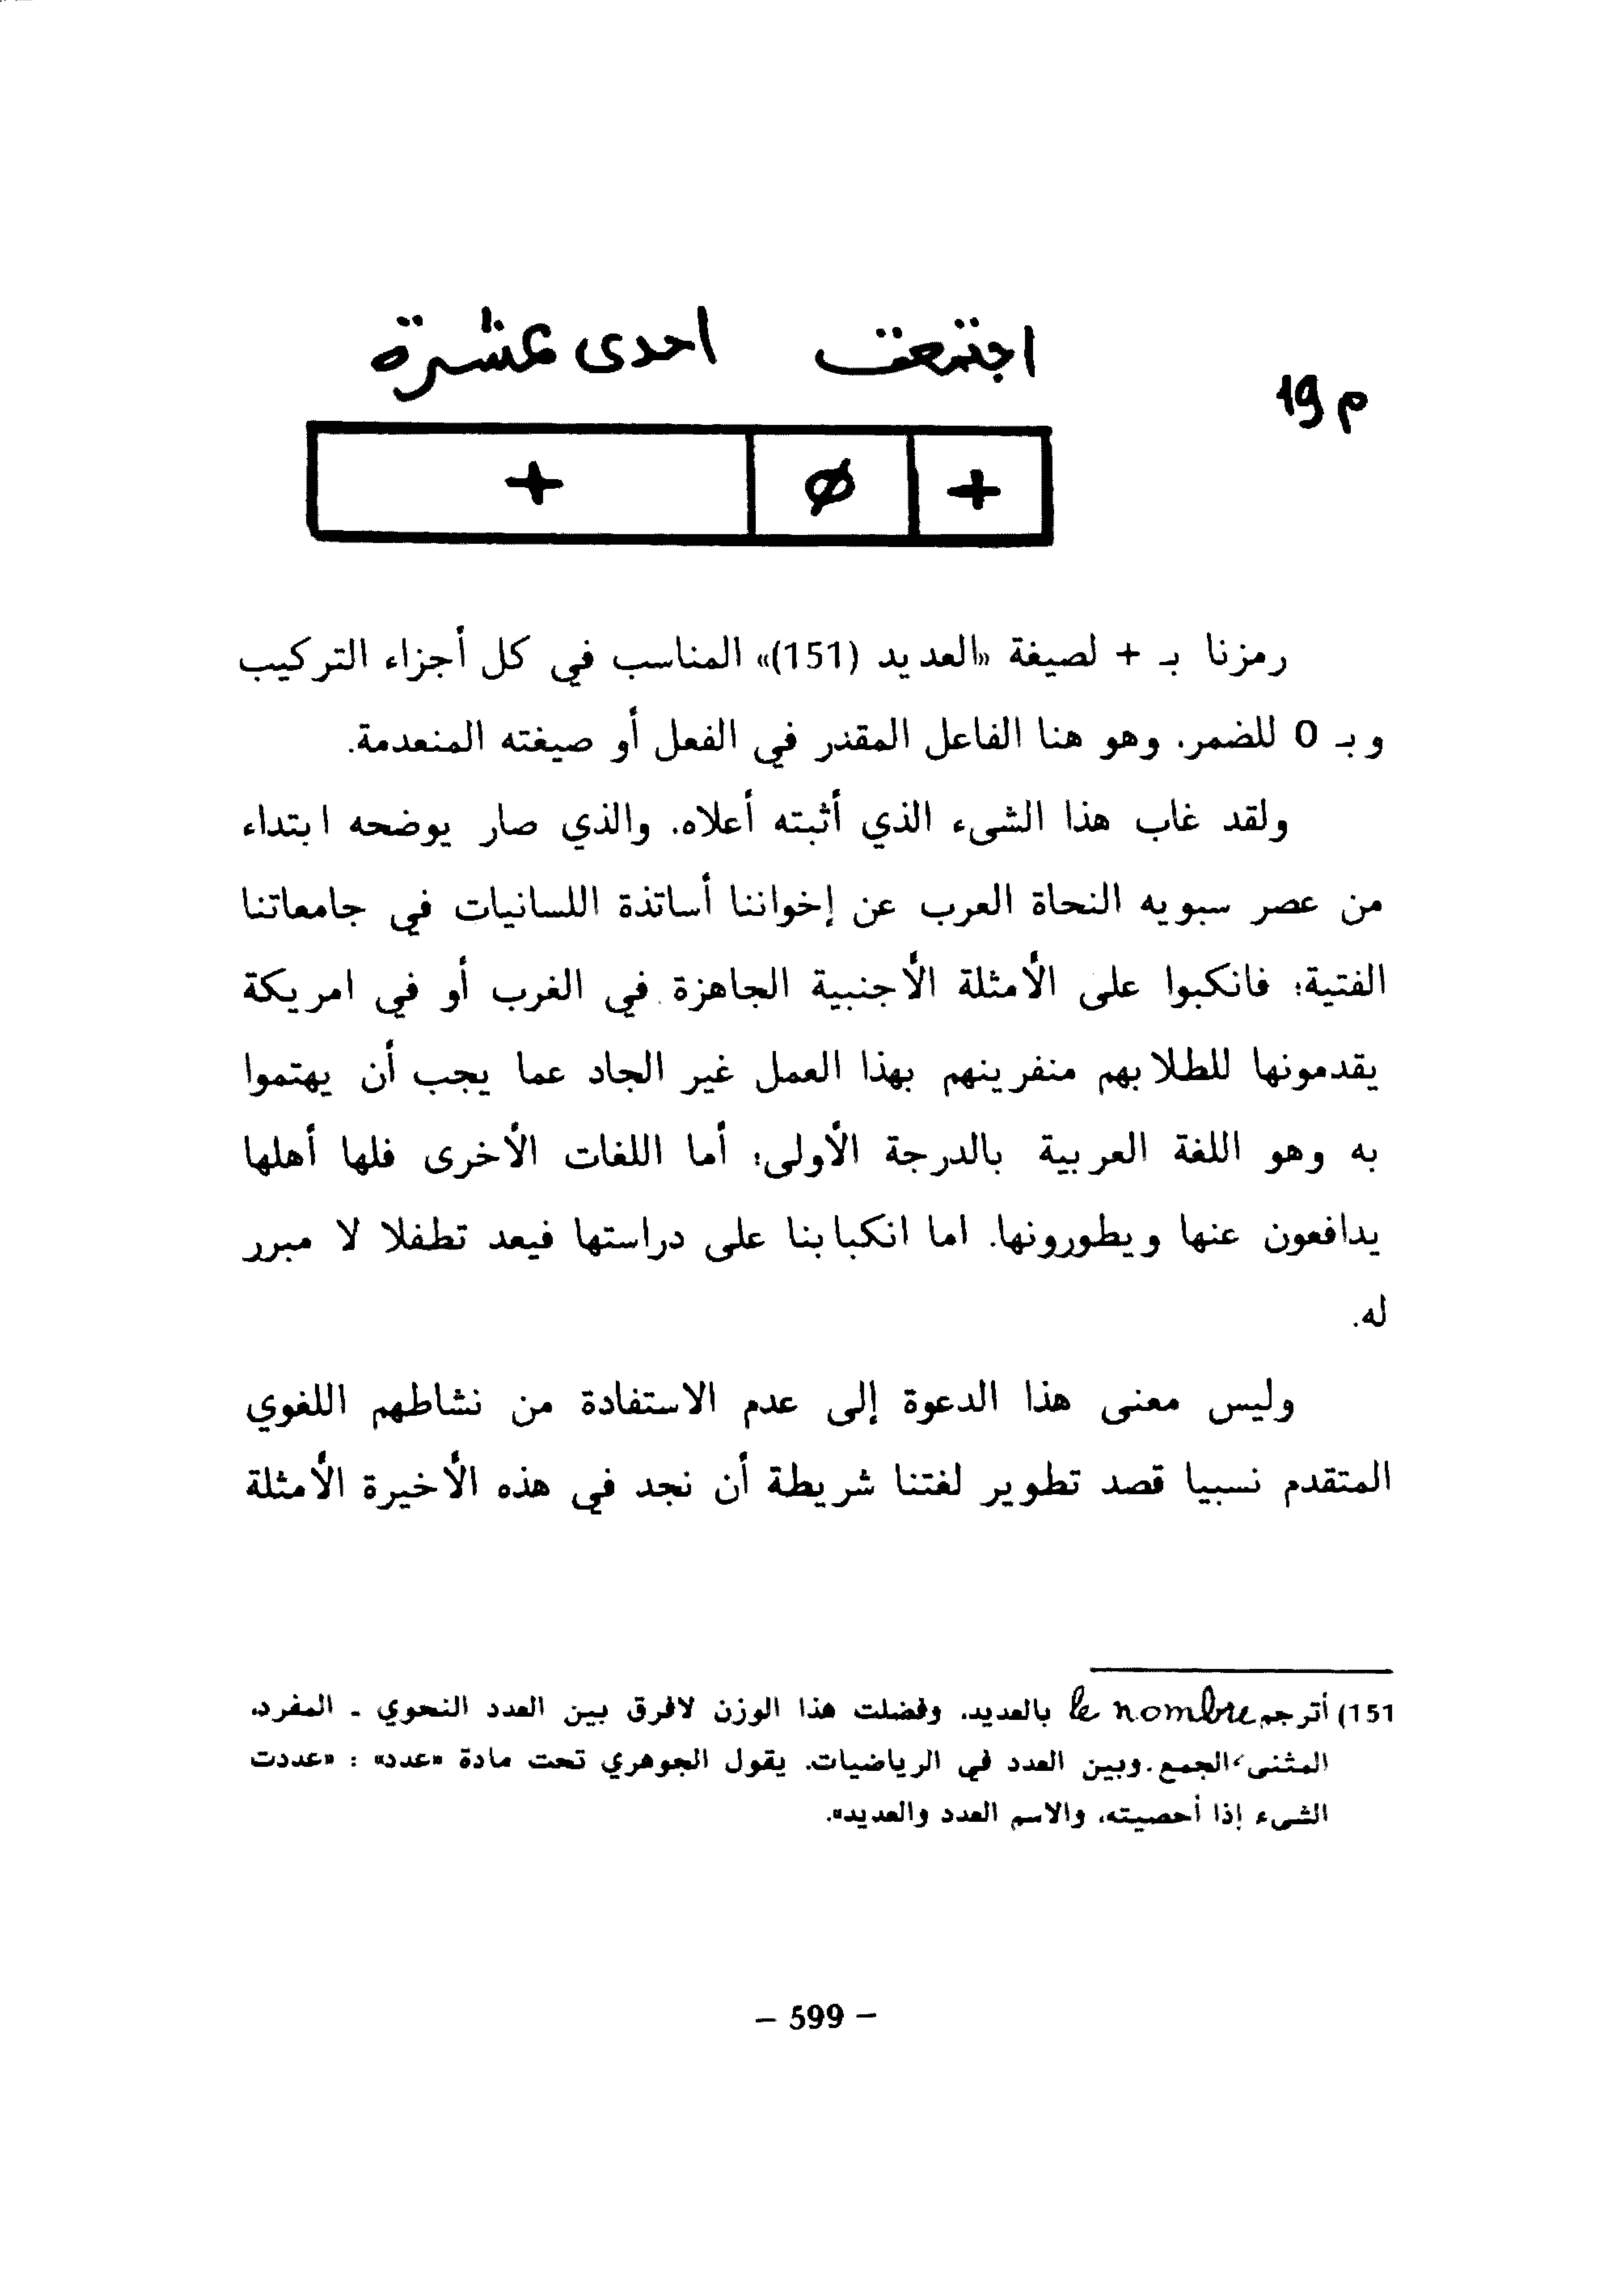 اجتمعت احدى عشرة
م 19
+ Ø +
رمزنا بـ + لصيغة «العديد (151)» المناسب في كل أجزاء التركيب
و بـ O للضمر. وهو هنا الفاعل المقدر في الفعل أو صيغته المنعدمة.
ولقد غاب هذا الشيء الذي أثبته أعلاه. والذي صار يوضحه ابتداء
من عصر سبويه النحاة العرب عن إخواننا أساتذة اللسانيات في جامعاتنا
الفتية؛ فانكبوا على الأمثلة الأجنبية الجاهزة في الغرب أو في امريكة
يقدمونها للطلابهم منفرينهم بهذا العمل غير الجاد عما يجب أن يهتموا
به وهو اللغة العربية بالدرجة الأولى؛ أما اللغات الأخرى فلها أهلها
يدافعون عنها ويطورونها. اما انكبابنا على دراستها فيعد تطفلا لا مبرر
له.
وليس معنى هذا الدعوة إلى عدم الاستفادة من نشاطهم اللغوي
المتقدم نسبيا قصد تطوير لغتنا شريطة أن نجد في هذه الأخيرة الأمثلة
151) أترجم le nombre بالعديد. وفضلت هذا الوزن لافرق بين العدد النحوي ـ المفرد،
المثنى، الجمع. وبين العدد في الرياضيات. يقول الجوهري تحت مادة «عدد» : «عددت
الشيء إذا أحصيته، والاسم العدد والعديد».
– 599 –